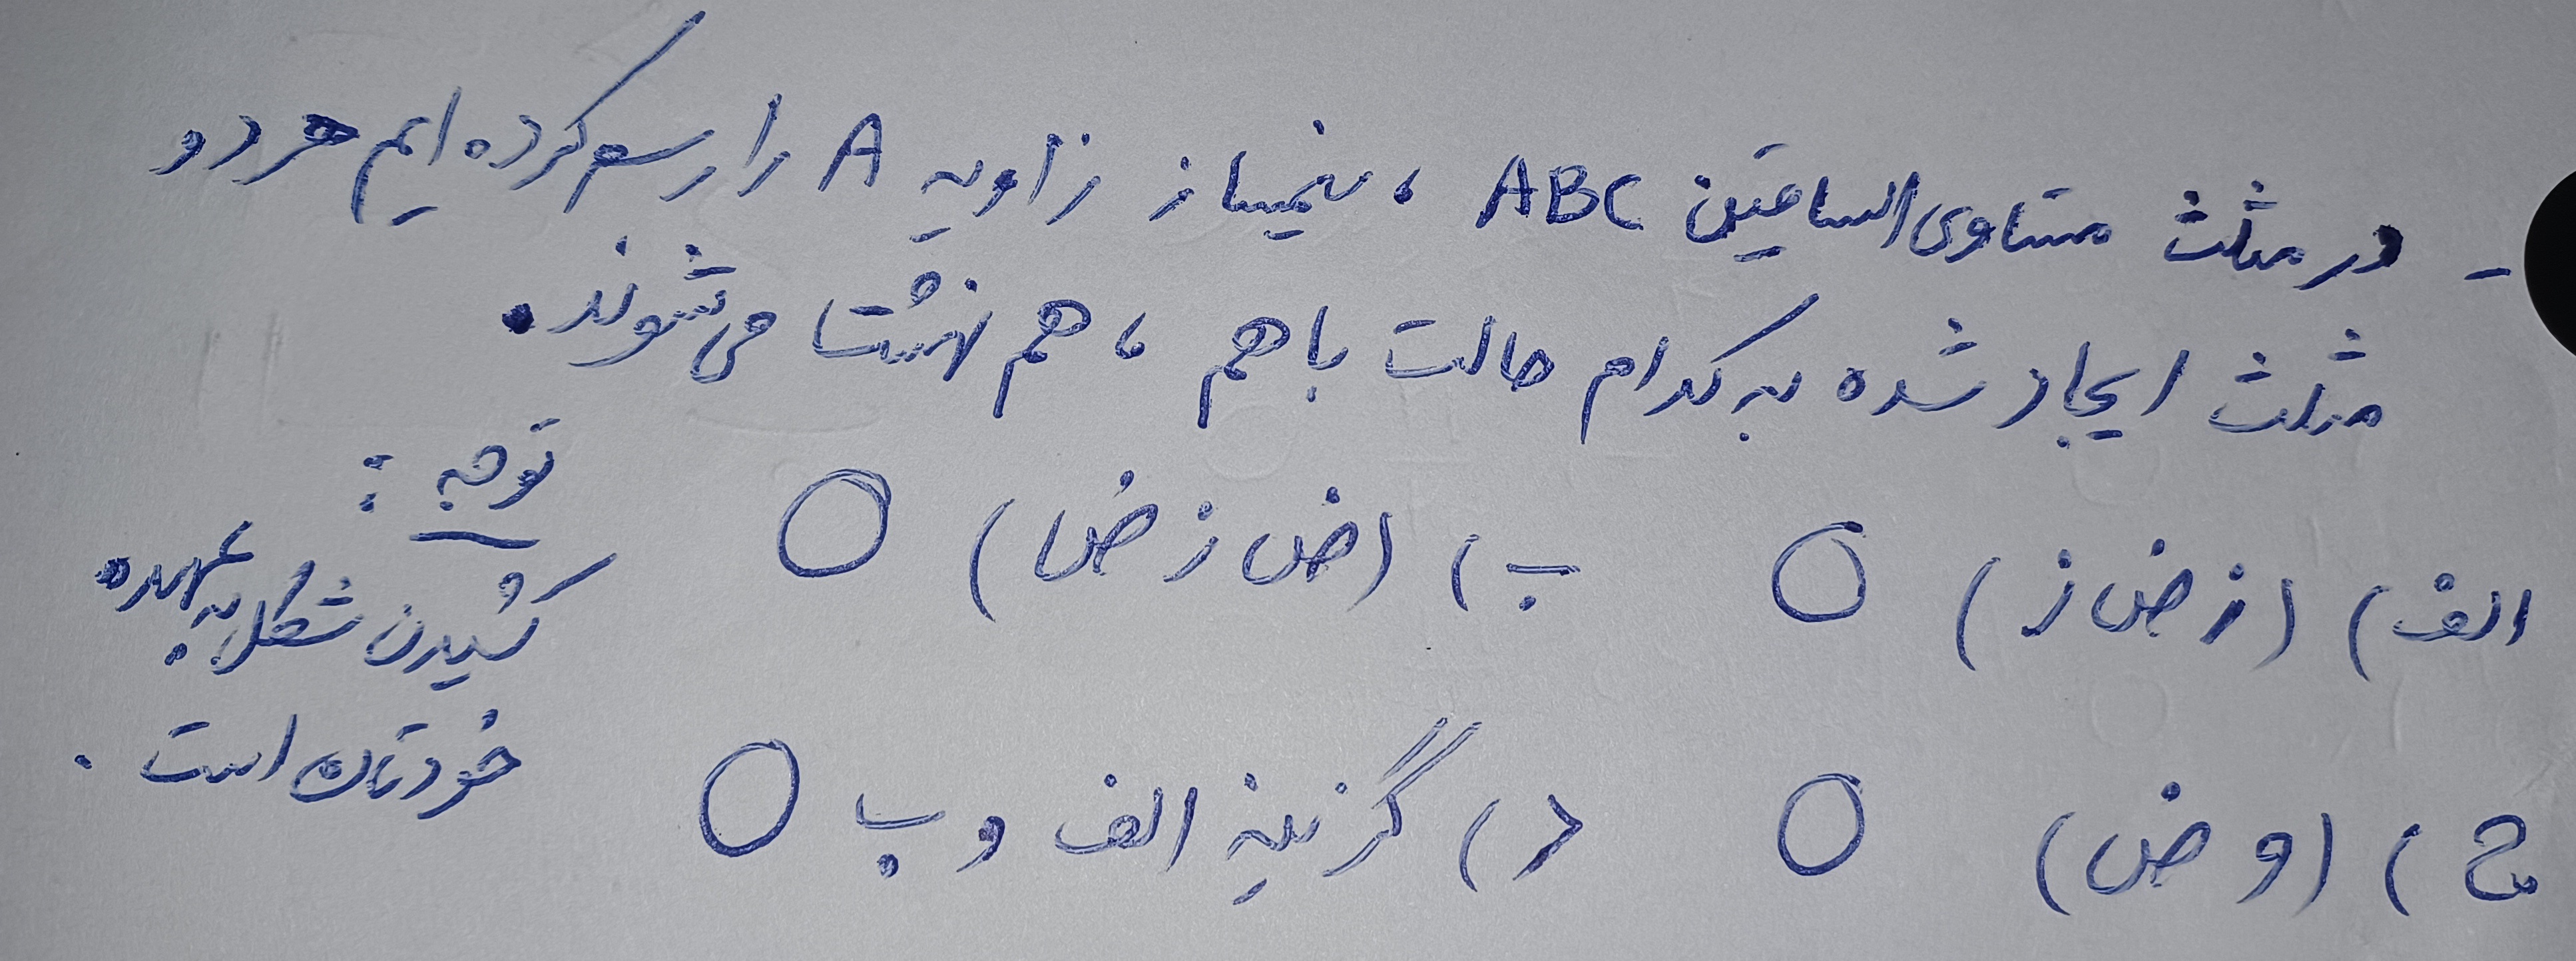 - در مثلث متساوی الساقین ABC ، نیمساز زاویه A را رسم کرده ایم هر دو
مثلث ایجاد شده به کدام حالت با هم ، هم نهشت می شوند.
الف) (ز ض ز) ب) (ض ز ض)
ج) (و ض) د) گزینه الف و ب
توجه :
کشیدن شکل به عهده
خودتان است .